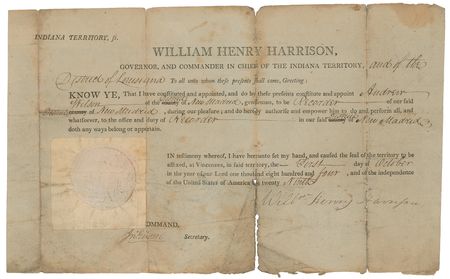 INDIANA TERRITORY, ſſ.
WILLIAM HENRY HARRISON,
GOVERNOR, AND COMMANDER IN CHIEF OF THE INDIANA TERRITORY, and of the
District of Louisiana To all unto whom these presents shall come, Greeting:
KNOW YE, That I have constituted and appointed, and do by these presents constitute and appoint Andrew
Wilson of the county of New Madrid, gentleman, to be Recorder of our said
District county of New Madrid, during our pleasure; and do hereby authorise and empower him to do and perform all, and
whatsoever, to the office and duty of Recorder in our said District New Madrid
doth any ways belong or appertain.
IN testimony whereof, I have hereunto set my hand, and caused the seal of the territory to be
affixed, at Vincennes, in said territory, the First day of October
in the year of our Lord one thousand eight hundred and four, and of the independence
of the United States of America the twenty Ninth
Will<sup>m</sup> Henry Harrison
COMMAND,
Secretary.